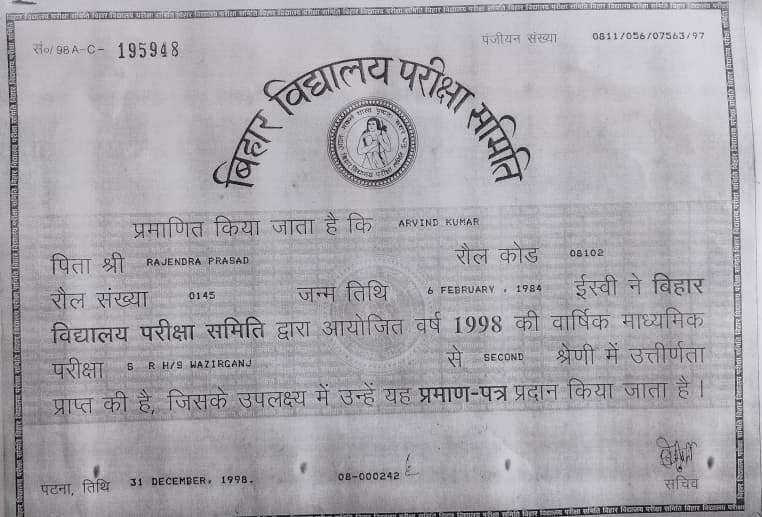 सं०/98A-C- 195948
पंजीयन संख्या 0811/056/07563/97
बिहार विद्यालय परीक्षा समिति
प्रमाणित किया जाता है कि ARVIND KUMAR
पिता श्री RAJENDRA PRASAD रौल कोड 08102
रौल संख्या 0145 जन्म तिथि 6 FEBRUARY , 1984 ईस्वी ने बिहार
विद्यालय परीक्षा समिति द्वारा आयोजित वर्ष 1998 की वार्षिक माध्यमिक
परीक्षा S R H/S WAZIRGANJ से SECOND श्रेणी में उत्तीर्णता
प्राप्त की है, जिसके उपलक्ष्य में उन्हें यह प्रमाण-पत्र प्रदान किया जाता है।
पटना, तिथि 31 DECEMBER, 1998. 08-000242
सचिव